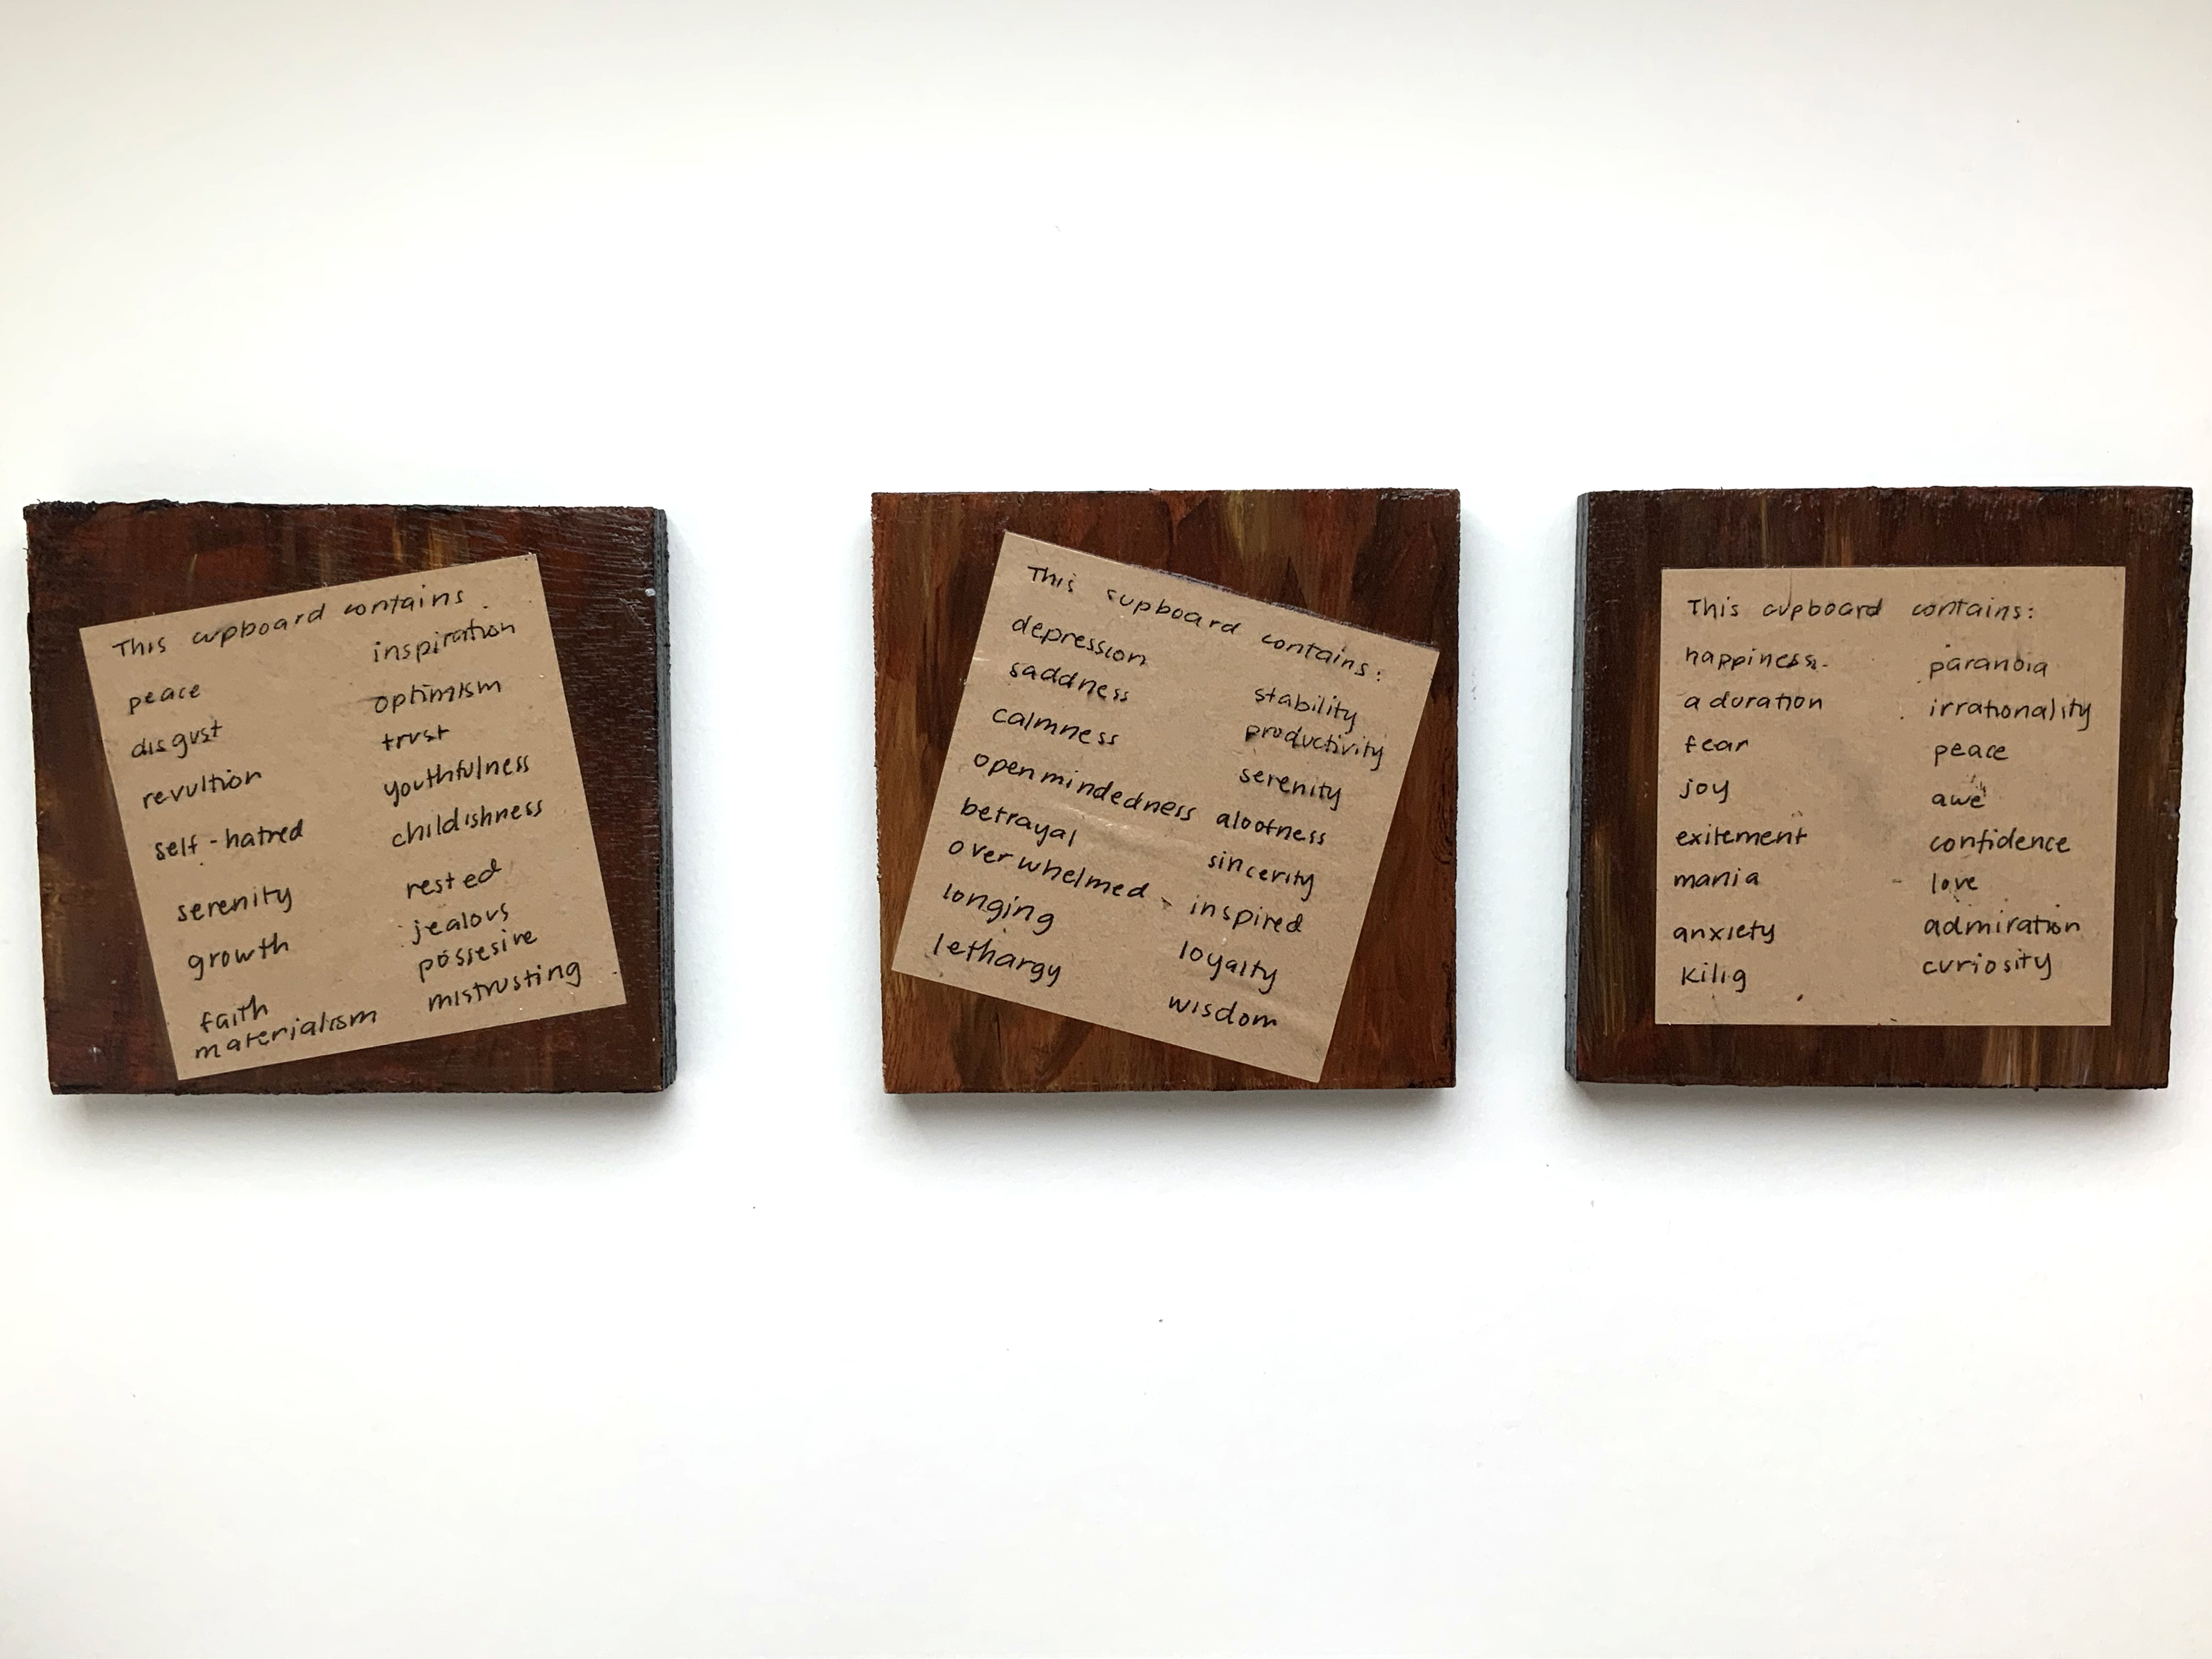 This cupboard contains
peace
disgust
revultion
self-hatred
serenity
growth
faith
materialism
inspiration
optimism
trust
youthfulness
childishness
rested
jealous
possesive
mistrusting
This cupboard contains:
depression
saddness
calmness
openmindedness
betrayal
overwhelmed
longing
lethargy
stability
productivity
serenity
alootness
sincerity
inspired
loyalty
wisdom
This cupboard contains:
happiness
adoration
fear
joy
exitement
mania
anxiety
kilig
paranoia
irrationality
peace
awe
confidence
love
admiration
curiosity